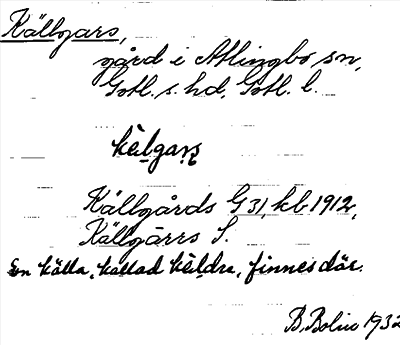 Källgars,
gård i Atlingbo sn,
Gotl. s. hd, Gotl. l.
kälgaṛṣ
Källgårds G 31, kb 1912,
Källgårrs S.
En källa, kallad käldra, finnes där.
B. Bolin 1932